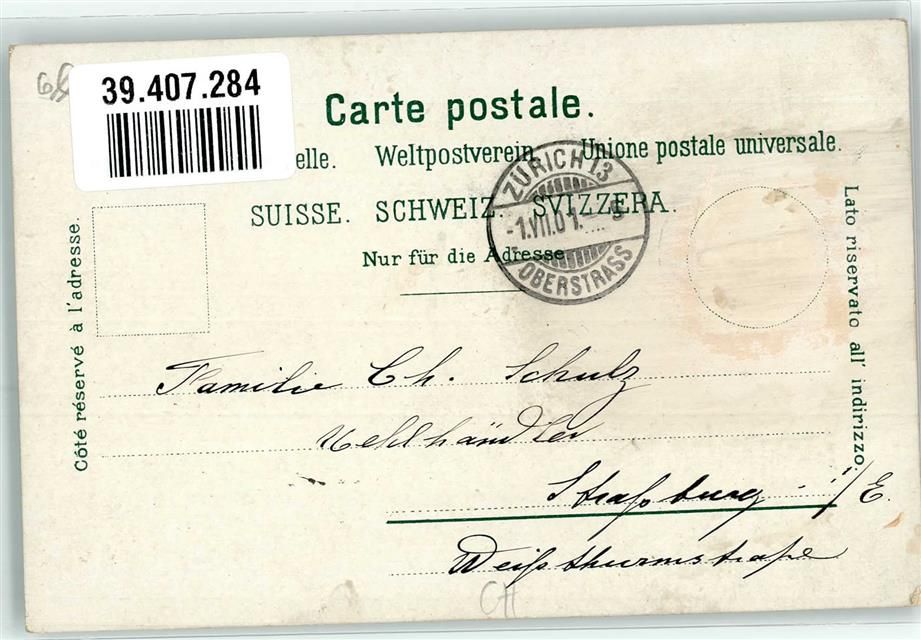 39.407.284
Carte postale.
elle. Weltpostverein Unione postale universale.
SUISSE. SCHWEIZ. SVIZZERA.
Nur für die Adresse
ZÜRICH 13
-1.VII.01.-5
OBERSTRASS
Côté réservé à l'adresse.
Lato riservato all' indirizzo.
Familie Ch. Schulz
Mehlhändler
Straßburg i/E.
Weißthurmstraße
CH